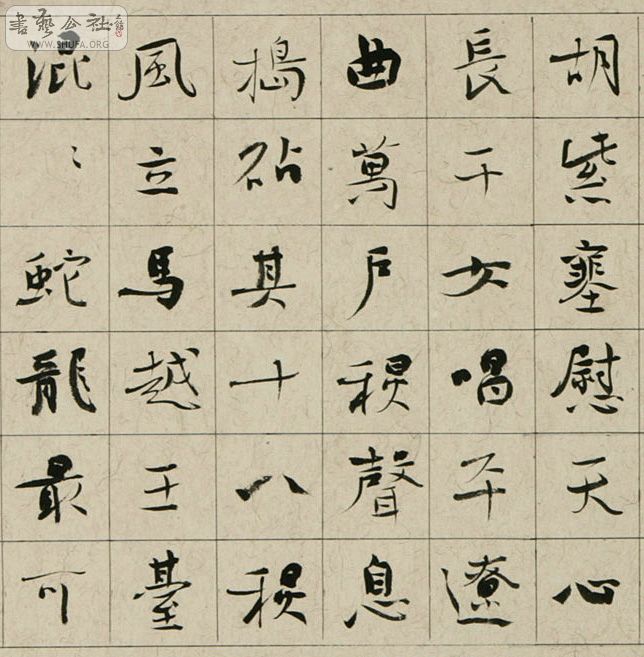 書藝公社
WWW.SHUFA.ORG
胡紫塞慰天心
長干女唱平遼
曲萬戶秋聲息
搗砧其十八秋
風立馬越王臺
混〻蛇龍最可